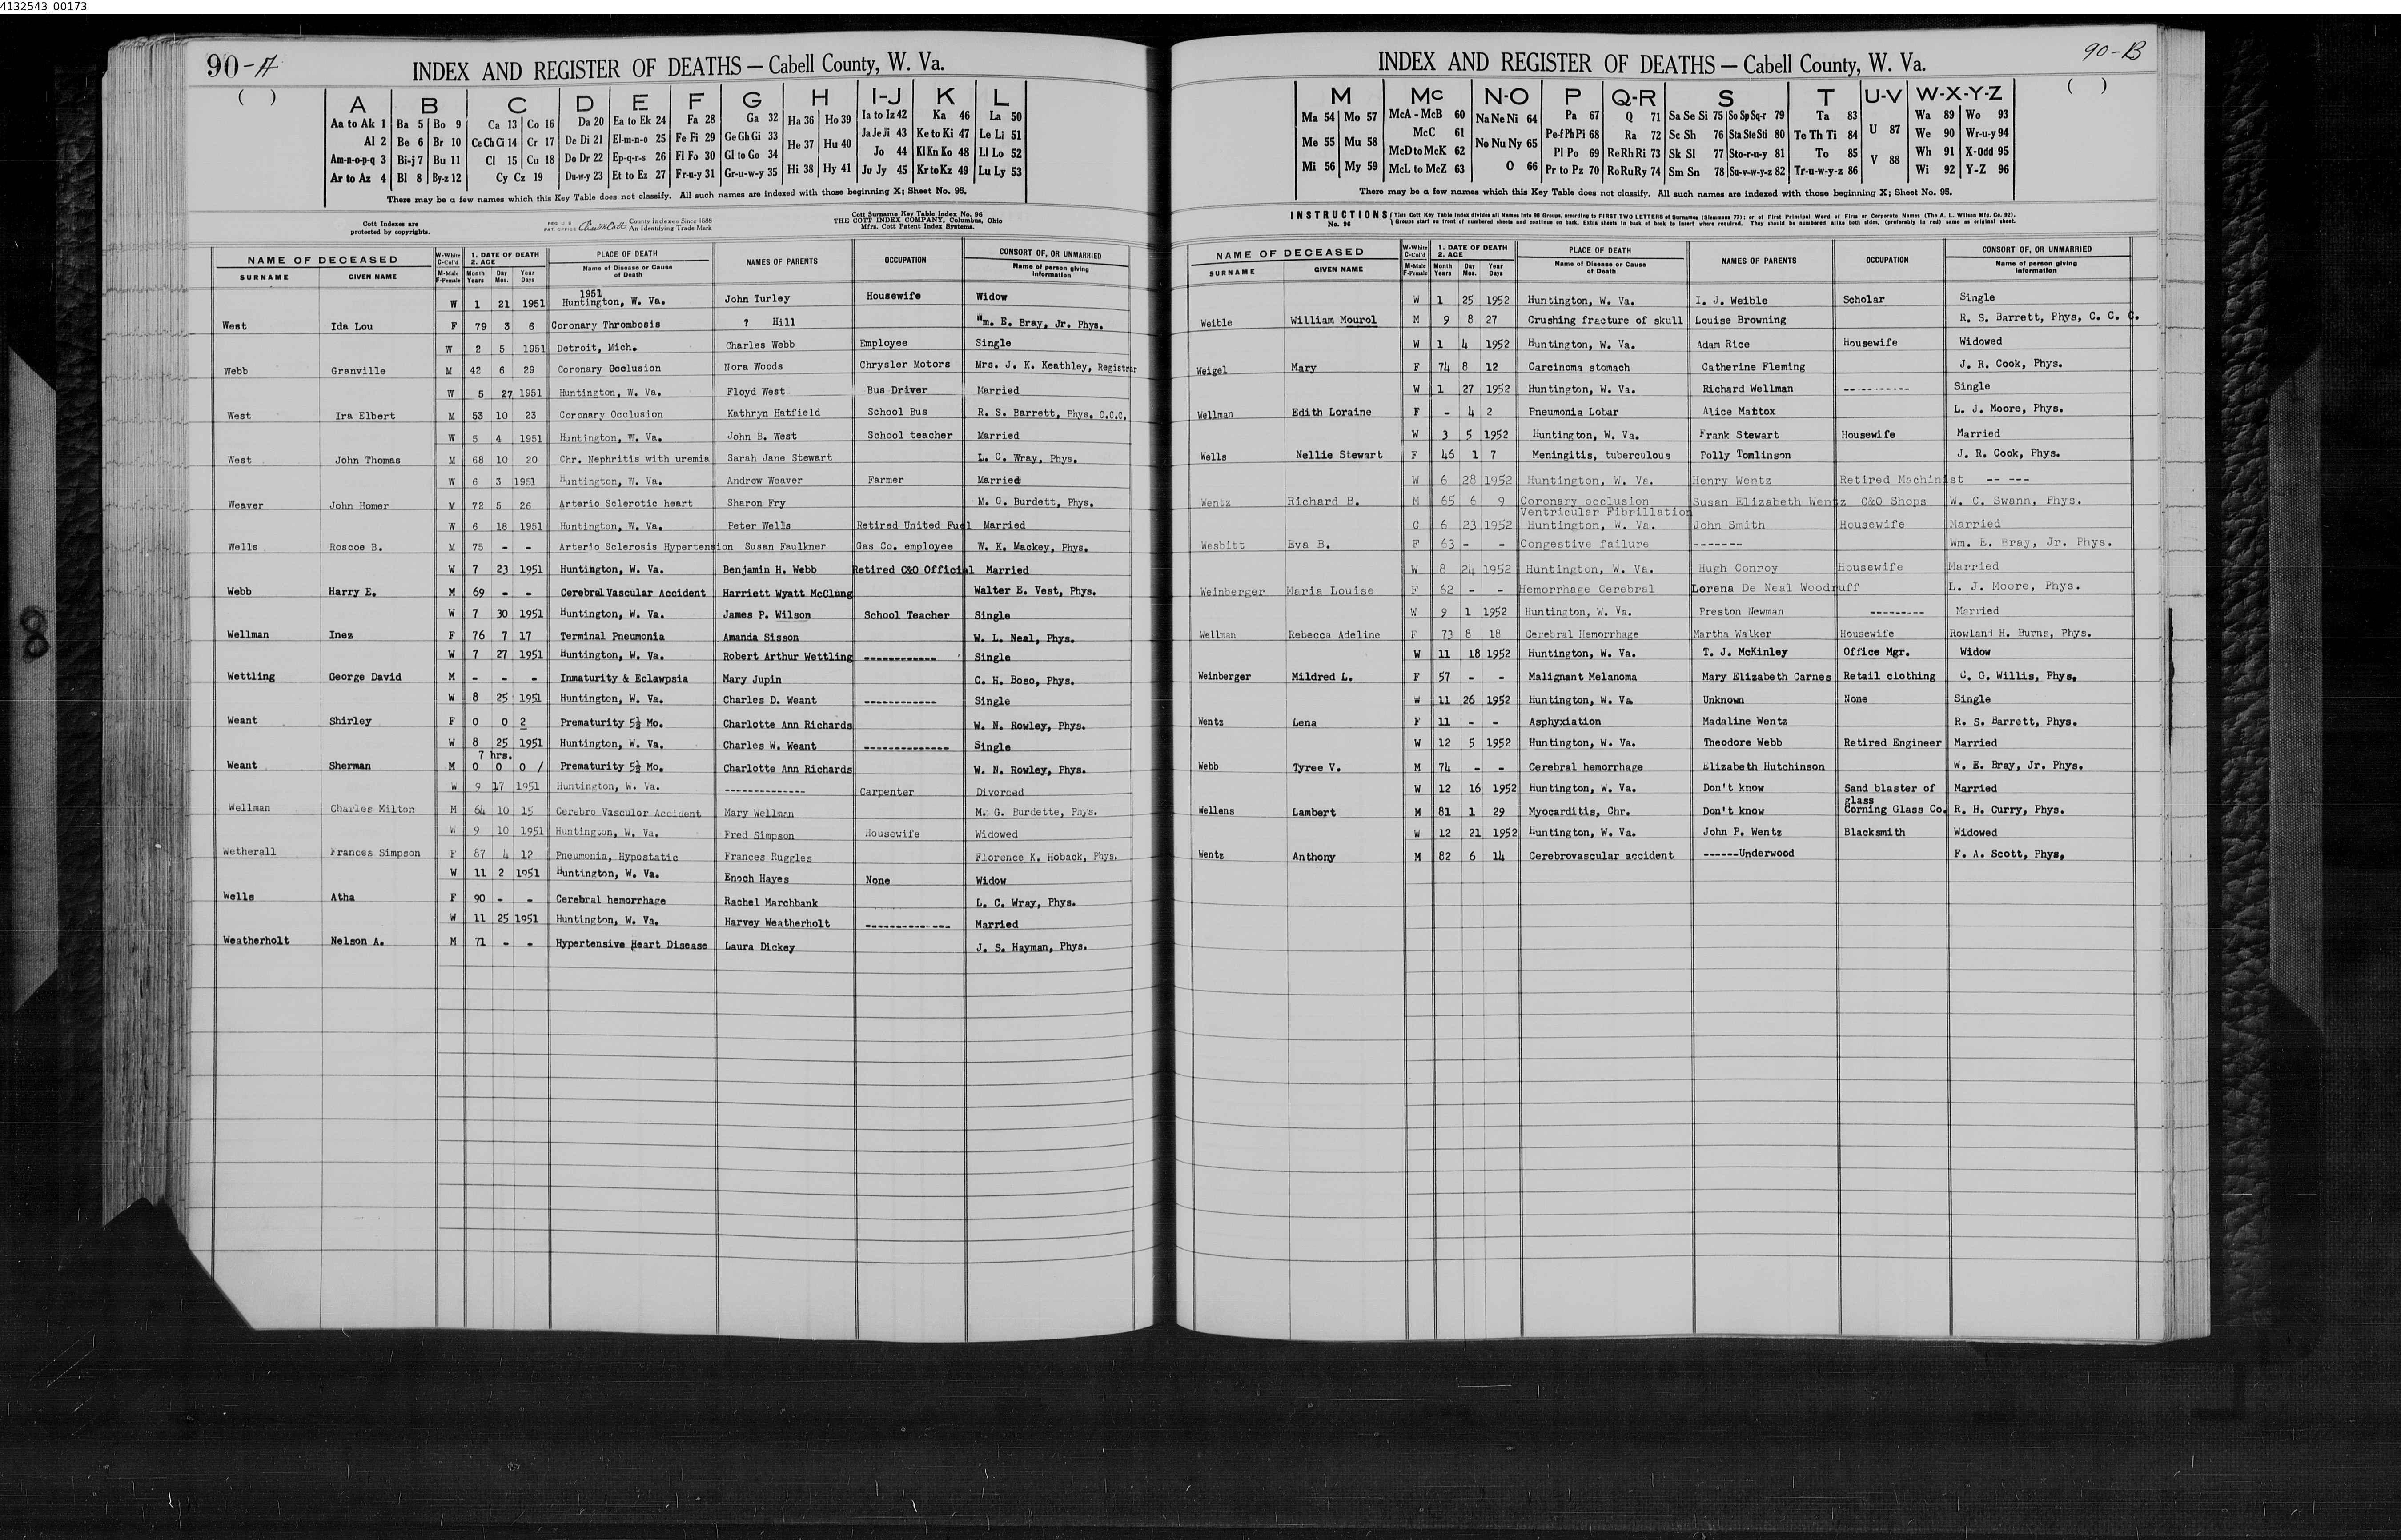 4132543_00173
90-A
INDEX AND REGISTER OF DEATHS — Cabell County, W. Va.
( )
A B C D E F G H I-J K L
Aa to Ak 1 Ba 5 Bo 9 Ca 13 Co 16 Da 20 Ea to Ek 24 Fa 28 Ga 32 Ha 36 Ho 39 Ia to Iz 42 Ka 46 La 50
Al 2 Be 6 Br 10 Ce Ch Ci 14 Cr 17 De Di 21 El-m-n-o 25 Fe Fi 29 Ge Gh Gi 33 He 37 Hu 40 Ja Je Ji 43 Ke to Ki 47 Le Li 51
Am-n-o-p-q 3 Bi-j 7 Bu 11 Cl 15 Cu 18 Do Dr 22 Ep-q-r-s 26 Fl Fo 30 Gl to Go 34 Jo 44 Kl Kn Ko 48 Ll Lo 52
Ar to Az 4 Bl 8 By-z 12 Cy Cz 19 Du-w-y 23 Et to Ez 27 Fr-u-y 31 Gr-u-w-y 35 Hi 38 Hy 41 Ju Jy 45 Kr to Kz 49 Lu Ly 53
There may be a few names which this Key Table does not classify. All such names are indexed with those beginning X; Sheet No. 95.
Cott Indexes are protected by copyrights.
REG U S PAT. OFFICE County Indexes Since 1888 An Identifying Trade Mark
Cott Surname Key Table Index No. 96
THE COTT INDEX COMPANY, Columbus, Ohio
Mfrs. Cott Patent Index Systems.
NAME OF DECEASED W-White C-Col'd 1. DATE OF DEATH 2. AGE PLACE OF DEATH NAMES OF PARENTS OCCUPATION CONSORT OF, OR UNMARRIED
SURNAME GIVEN NAME M-Male F-Female Month Years Day Mos. Year Days Name of Disease or Cause of Death Name of person giving information
1951
W 1 21 1951 Huntington, W. Va. John Turley Housewife Widow
West Ida Lou F 79 3 6 Coronary Thrombosis ? Hill Wm. E. Bray, Jr. Phys.
W 2 5 1951 Detroit, Mich. Charles Webb Employee Single
Webb Granville M 42 6 29 Coronary Occlusion Nora Woods Chrysler Motors Mrs. J. K. Keathley, Registrar
W 5 27 1951 Huntington, W. Va. Floyd West Bus Driver Married
West Ira Elbert M 53 10 23 Coronary Occlusion Kathryn Hatfield School Bus R. S. Barrett, Phys. C.C.C.
W 5 4 1951 Huntington, W. Va. John B. West School teacher Married
West John Thomas M 68 10 20 Chr. Nephritis with uremia Sarah Jane Stewart L. C. Wray, Phys.
W 6 3 1951 Huntington, W. Va. Andrew Weaver Farmer Married
Weaver John Homer M 72 5 26 Arterio Sclerotic heart Sharon Fry M. G. Burdett, Phys.
W 6 18 1951 Huntington, W. Va. Peter Wells Retired United Fuel Married
Wells Roscoe B. M 75 - - Arterio Sclerosis Hypertension Susan Faulkner Gas Co. employee W. K. Mackey, Phys.
W 7 23 1951 Huntington, W. Va. Benjamin H. Webb Retired C&O Official Married
Webb Harry E. M 69 - - Cerebral Vascular Accident Harriett Wyatt McClung Walter E. Vest, Phys.
W 7 30 1951 Huntington, W. Va. James P. Wilson School Teacher Single
Wellman Inez F 76 7 17 Terminal Pneumonia Amanda Sisson W. L. Neal, Phys.
W 7 27 1951 Huntington, W. Va. Robert Arthur Wettling ------------ Single
Wettling George David M - - - Inmaturity & Eclawpsia Mary Jupin C. H. Boso, Phys.
W 8 25 1951 Huntington, W. Va. Charles D. Weant ------------ Single
Weant Shirley F 0 0 2 Prematurity 5½ Mo. Charlotte Ann Richards W. N. Rowley, Phys.
W 8 25 1951 Huntington, W. Va. Charles W. Weant -------------- Single
7 hrs.
Weant Sherman M 0 0 0 / Prematurity 5½ Mo. Charlotte Ann Richards W. N. Rowley, Phys.
W 9 17 1951 Huntington, W. Va. -------------- Carpenter Divorced
Wellman Charles Milton M 64 10 15 Cerebro Vascular Accident Mary Wellman M. G. Burdette, Phys.
W 9 10 1951 Huntington, W. Va. Fred Simpson Housewife Widowed
Wetherall Frances Simpson F 67 4 12 Pneumonia, Hypostatic Frances Ruggles Florence K. Hoback, Phys.
W 11 2 1951 Huntington, W. Va. Enoch Hayes None Widow
Wells Atha F 90 - - Cerebral hemorrhage Rachel Marchbank L. C. Wray, Phys.
W 11 25 1951 Huntington, W. Va. Harvey Weatherholt -------------- Married
Weatherholt Nelson A. M 71 - - Hypertensive Heart Disease Laura Dickey J. S. Hayman, Phys.
90-B
INDEX AND REGISTER OF DEATHS — Cabell County, W. Va.
( )
M Mc N-O P Q-R S T U-V W-X-Y-Z
Ma 54 Mo 57 McA - McB 60 Na Ne Ni 64 Pa 67 Q 71 Sa Se Si 75 So Sp Sq-r 79 Ta 83 U 87 Wa 89 Wo 93
Me 55 Mu 58 McC 61 No Nu Ny 65 Pe-f Ph Pi 68 Ra 72 Sc Sh 76 Sta Ste Sti 80 Te Th Ti 84 We 90 Wr-u-y 94
McD to McK 62 Pl Po 69 Re Rh Ri 73 Sk Sl 77 Sto-r-u-y 81 To 85 V 88 Wh 91 X-Odd 95
Mi 56 My 59 McL to McZ 63 O 66 Pr to Pz 70 Ro Ru Ry 74 Sm Sn 78 Su-v-w-y-z 82 Tr-u-w-y-z 86 Wi 92 Y-Z 96
There may be a few names which this Key Table does not classify. All such names are indexed with those beginning X; Sheet No. 95.
INSTRUCTIONS No. 96 This Cott Key Table Index divides all Names into 96 Groups, according to FIRST TWO LETTERS of Surnames (Slemmons 77); or of First Principal Word of Firm or Corporate Names (The A. L. Wilson Mfg. Co. 92).
Groups start on front of numbered sheets and continue on back. Extra sheets in back of book to insert where required. They should be numbered alike both sides, (preferably in red) same as original sheet.
NAME OF DECEASED W-White C-Col'd 1. DATE OF DEATH 2. AGE PLACE OF DEATH NAMES OF PARENTS OCCUPATION CONSORT OF, OR UNMARRIED
SURNAME GIVEN NAME M-Male F-Female Month Years Day Mos. Year Days Name of Disease or Cause of Death Name of person giving information
W 1 25 1952 Huntington, W. Va. I. J. Weible Scholar Single
Weible William Mourol M 9 8 27 Crushing fracture of skull Louise Browning R. S. Barrett, Phys, C. C. C.
W 1 4 1952 Huntington, W. Va. Adam Rice Housewife Widowed
Weigel Mary F 74 8 12 Carcinoma stomach Catherine Fleming J. R. Cook, Phys.
W 1 27 1952 Huntington, W. Va. Richard Wellman ----------- Single
Wellman Edith Loraine F - 4 2 Pneumonia Lobar Alice Mattox L. J. Moore, Phys.
W 3 5 1952 Huntington, W. Va. Frank Stewart Housewife Married
Wells Nellie Stewart F 46 1 7 Meningitis, tuberculous Polly Tomlinson J. R. Cook, Phys.
W 6 28 1952 Huntington, W. Va. Henry Wentz Retired Machinist -- ---
Wentz Richard B. M 65 6 9 Coronary occlusion Susan Elizabeth Wentz C&O Shops W. C. Swann, Phys.
Ventricular Fibrillation
C 6 23 1952 Huntington, W. Va. John Smith Housewife Married
Wesbitt Eva B. F 63 - - Congestive failure ------- Wm. E. Bray, Jr. Phys.
W 8 24 1952 Huntington, W. Va. Hugh Conroy Housewife Married
Weinberger Maria Louise F 62 - - Hemorrhage Cerebral Lorena De Neal Woodruff L. J. Moore, Phys.
W 9 1 1952 Huntington, W. Va. Preston Newman --------- Married
Wellman Rebecca Adeline F 73 8 18 Cerebral Hemorrhage Martha Walker Housewife Rowland H. Burns, Phys.
W 11 18 1952 Huntington, W. Va. T. J. McKinley Office Mgr. Widow
Weinberger Mildred L. F 57 - - Malignant Melanoma Mary Elizabeth Carnes Retail clothing C. G. Willis, Phys.
W 11 26 1952 Huntington, W. Va Unknown None Single
Wentz Lena F 11 - - Asphyxiation Madaline Wentz R. S. Barrett, Phys.
W 12 5 1952 Huntington, W. Va. Theodore Webb Retired Engineer Married
Webb Tyree V. M 74 - - Cerebral hemorrhage Elizabeth Hutchinson W. E. Bray, Jr. Phys.
W 12 16 1952 Huntington, W. Va. Don't know Sand blaster of Married
glass
Wellens Lambert M 81 1 29 Myocarditis, Chr. Don't know Corning Glass Co. R. H. Curry, Phys.
W 12 21 1952 Huntington, W. Va. John P. Wentz Blacksmith Widowed
Wentz Anthony M 82 6 14 Cerebrovascular accident ------Underwood F. A. Scott, Phys,
8